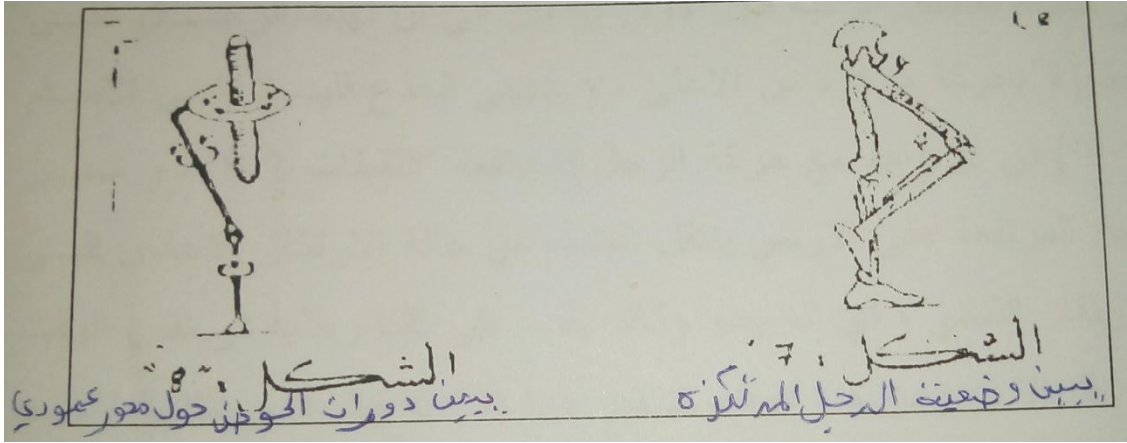 الشكل : 7
يبين وضعية الرجل المرتكزة
الشكل : "8"
يبين دوران الحوض حول محور عمودي